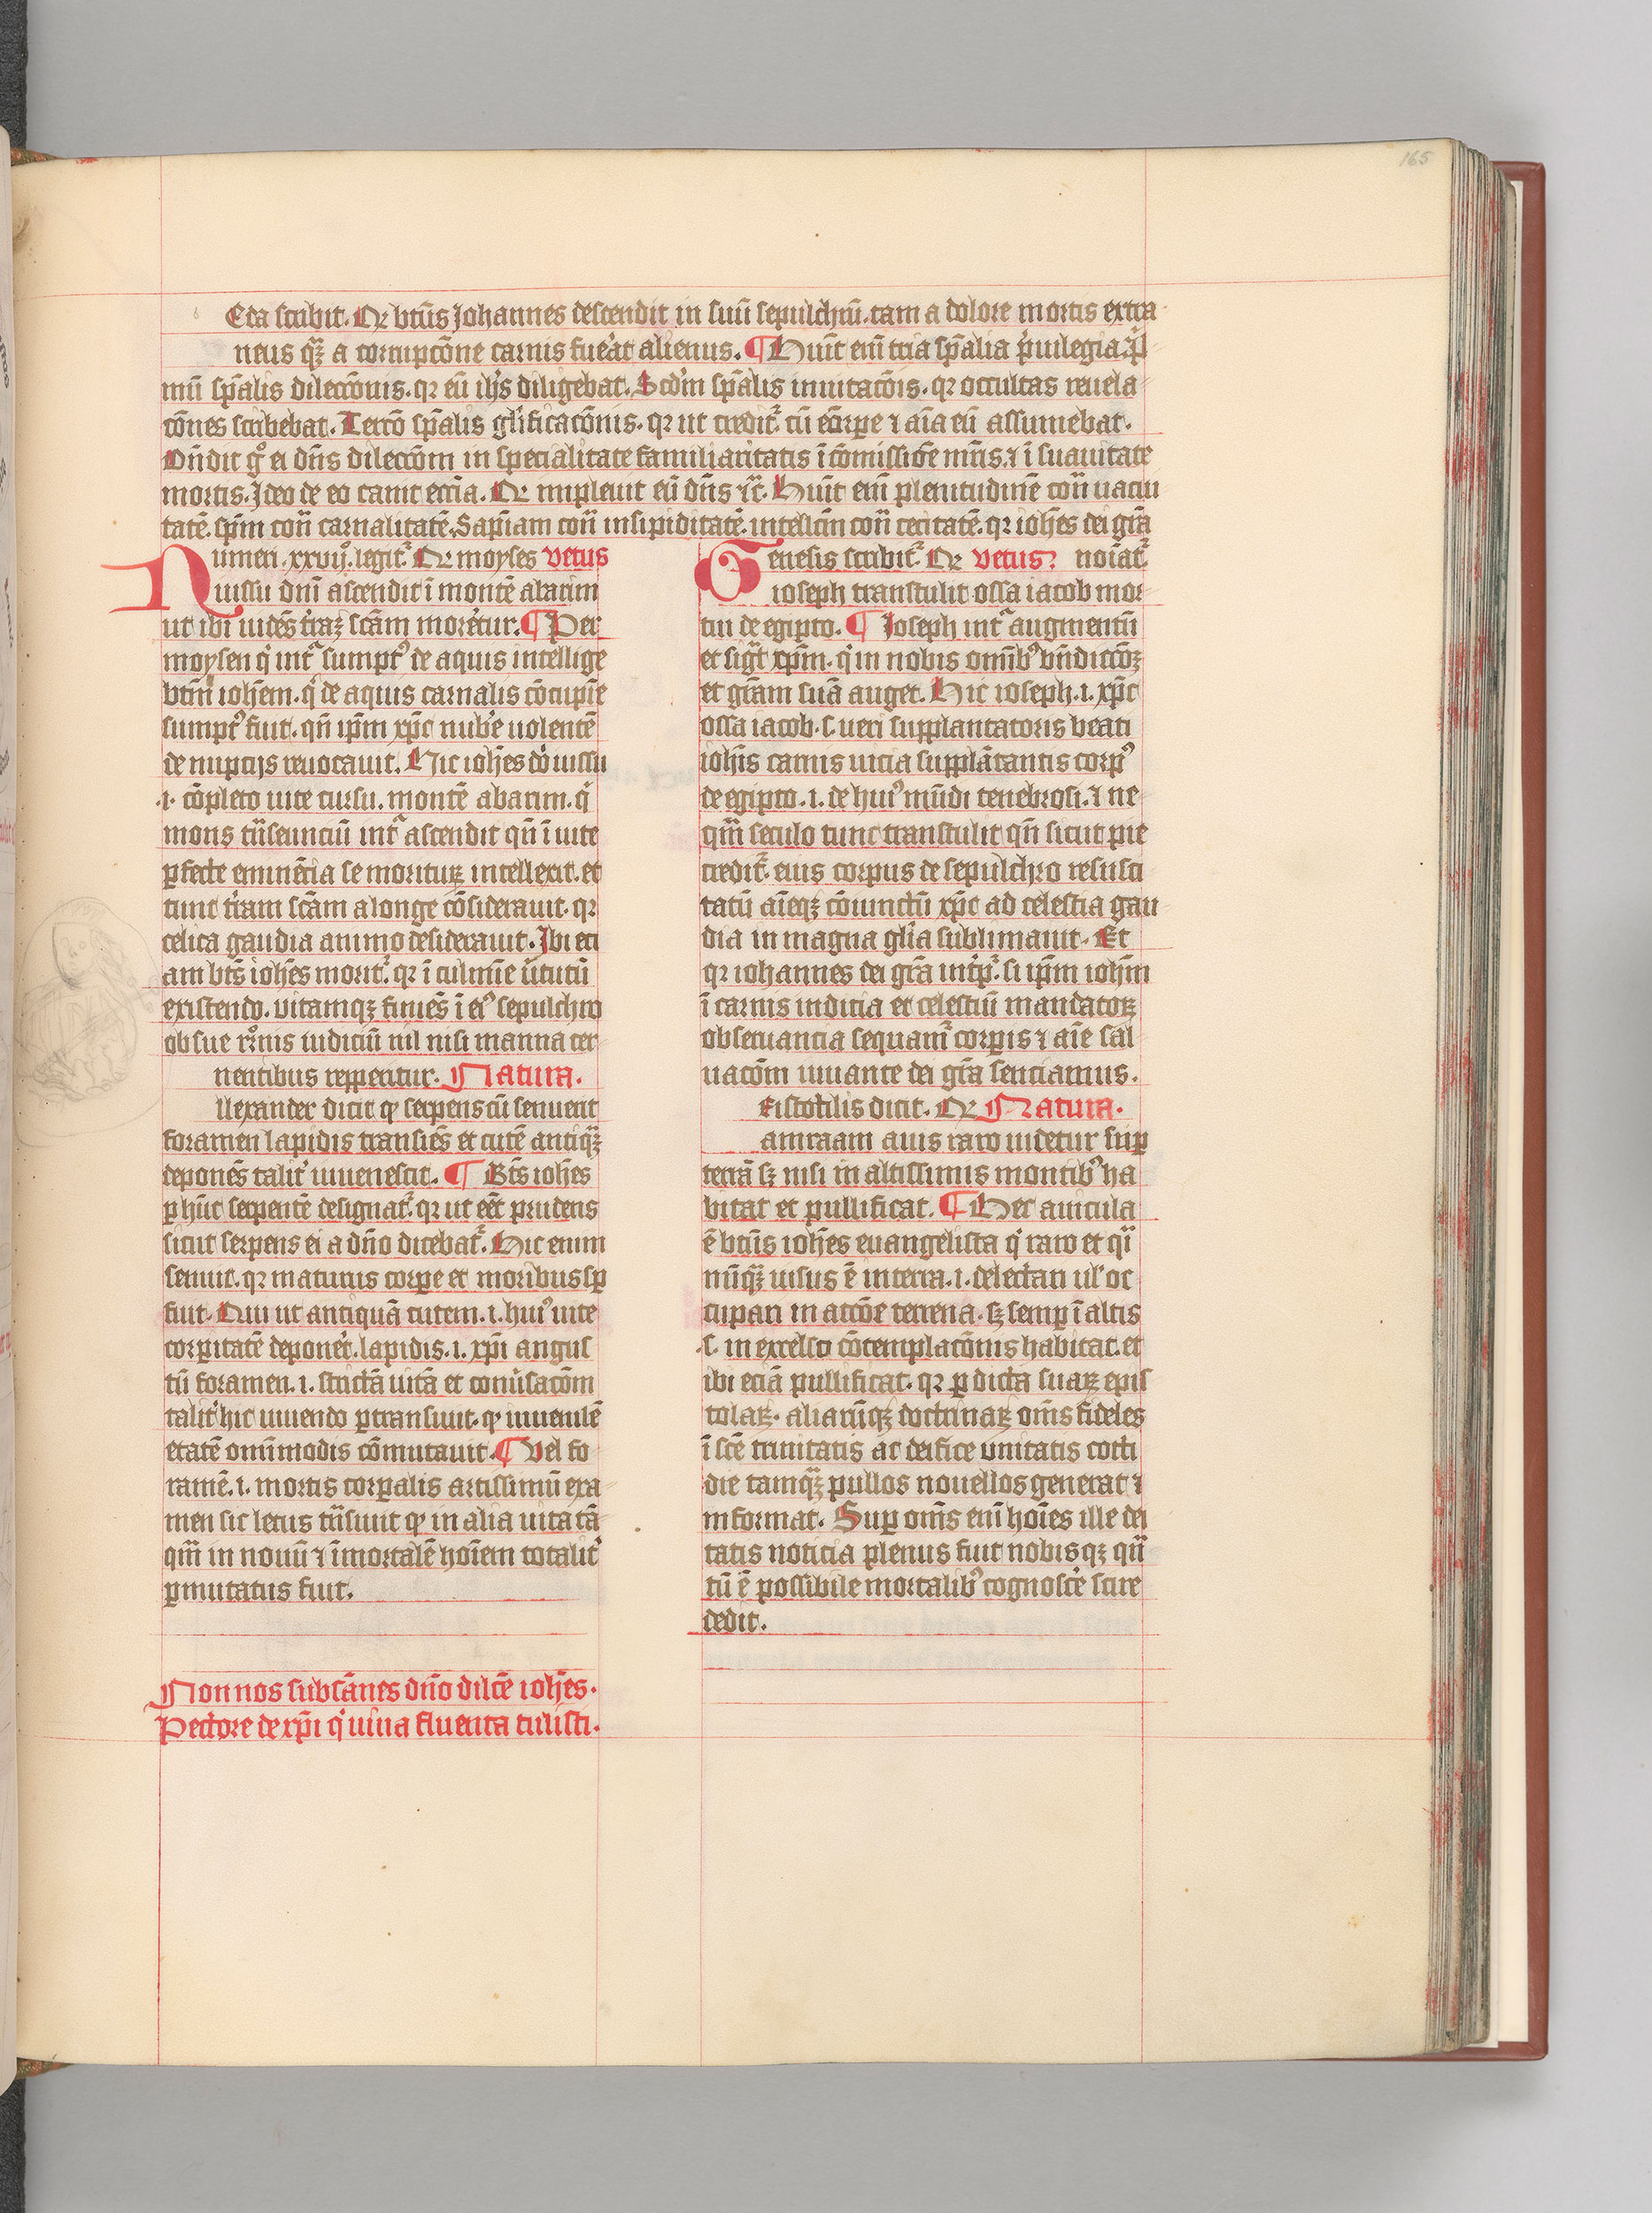 165
Eda scribit. Qr btūs Johannes descendit in suū sepulchrū. tam a dolore mortis extra
neus qʒ̄ a corrupcōne carnis fuerat alienus. ¶ Huīt eī tria spālia puilegia. p̄
mū spālis dilecc̄onis. qr eū ih̄s diligebat. Scd̄m spālis inuitac̄ois. qr occultas reuela
c̄ones scribebat. Tercō spālis glificac̄onis. qr ut credit̄ cū corpe ⁊ aīa eū assumebat.
On̄dit gͦ ei dn̄s dilecc̄om in specialitate familiaritatis ī comissiōe mr̄is. ⁊ ī suauitate
mortis. Ideo de eo canit eccīa. Qr impleuit eū dn̄s ⁊c̄. Huīt eī plenitudinē con̄ uacui
tatē. spm̄ con̄ carnalitatē. Sapīam con̄ insipiditatē. intellc̄m con̄ cecitatē. qr ioh̄es dei gr̄a
Numeri. xxvijͦ. legit̄. Qr moyses vetus
iussu dn̄i ascendit ī montē abarim
ut ibi uidēs traʒ scām moretur. ¶ Per
moysen qͥ int̄ sumptꝰ de aquis intellige
btm̄ ioh̄em. qͥ de aquis carnalis c̄cupīe
sumptꝰ fuit. qn̄ ipm̄ xp̄c nube uolentē
de nuptijs reuocauit. Hic ioh̄es dō iussu
.i. c̄opleto uite cursu. montē abarim. qͥ
mons tn̄seunciū int̄ ascendit qn̄ ī uite
pfecte eminēcia se moriturʒ intellexit. et
tunc t̄ram scām a longe c̄osiderauit. qr
celica gaudia animo desiderauit. Ibi eci
am bt̄s ioh̄es morit̄. qr ī culmīe ūtutū
existendo. vitamqʒ finiēs ī eiꝰ sepulchro
ob sue r̄onis iudiciū nil nisi manna cer
nentibus repperitur. Natura.
llexander dicit qͩ serpens cū senuerit
foramen lapidis transiēs et cutē antiqʒ̄
deponēs talit̄ iuuenescit. ¶ Bt̄s ioh̄es
p hūc serpentē designat̄. qr ut eēt prudens
sicut serpens ei a dn̄o dicebat̄. Hic enim
senuit. qr maturus corpe et moribus sp
fuit. Qui ut antiquā cutem. i. huiꝰ uite
corpitatē deponet̄. lapidis. i. xp̄i angus
tū foramen. i. strictā uitā et conūsac̄om
talit̄ hic uiuendo ptransiuit. qͩ iuuenilē
etatē omīmodis c̄omutauit. ¶ Vel fo
ramē. i. mortis corpalis artissimū exa
men sic letus tn̄siuit qͩ in alia uita tā
qm̄ in nouū ⁊ īmortalē hoīem totalit̄
pmutatus fuit.
Non nos subsānes dn̄o dilcē ioh̄es.
Pectore de xp̄i qͥ uiua fluenta tulisti.
Genesis scribit̄. Qr vetus noīat̄
ioseph transtulit ossa iacob mor
tui de egipto. ¶ Joseph int̄ augmentū
et sigt̄ xp̄m. qͥ in nobis omībꝰ bn̄dicc̄oʒ
et gr̄am suā auget. Hic ioseph. i. xp̄c
ossa iacob. s. ueri supplantatoris beati
ioh̄is carnis uicia supplātantis corpꝰ
de egipto. i. de huiꝰ mūdi tenebrosi. ⁊ ne
qm̄ seculo tunc transtulit qn̄ sicut pie
credit̄. eius corpus de sepulchro resusci
tatū aīeqʒ c̄oiunctū xp̄c ad celestia gau
dia in magna glīa sublimauit. Et
qr iohannes dei gr̄a int̄p̄t̄. si ipm̄ ioh̄m
ī carnis indicia et celestiū mandatoʒ
obseruancia sequam̄ corpis ⁊ aīe sal
uac̄om iuuante dei gr̄a senciamus.
Ristotilis dicit. Qr Natura.
amraam auis raro uidetur sup
terrā sʒ nisi in altissimis montibꝰ ha
bitat et pullificat. ¶ Hec auicula
ē btūs ioh̄es euangelista qͥ raro et qī
nūqʒ̄ uisus ē in terra. i. delectari ul oc
cupari in acc̄oe terrena. sʒ semp ī altis
.s. in excelso c̄otemplac̄onis habitat. et
ibi eciā pullificat. qr p dicta suaʒ epis
tolaʒ. aliarūqʒ doctrinaʒ om̄s fideles
ī scē trinitatis ac deifice unitatis cotti
die tamqʒ̄ pullos nouellos generat ⁊
informat. Sup om̄s eī hoīes ille dei
tatis noticia plenus fuit nobisqʒ qn̄
tū ē possibile mortalibꝰ cognosc̄e scire
dedit.